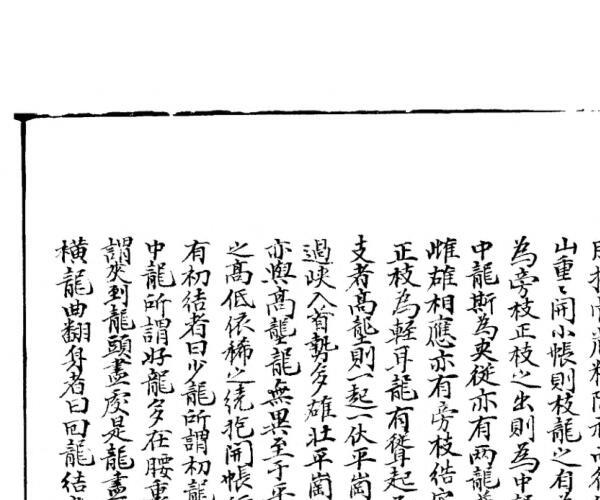 山重〻開小帳則枝龍之有
為旁枝正枝之出則為中
中龍斯為史從亦有两龍
雌雄相應亦有旁枝结
正枝為軽耳龍有聳起
支者高壠則一起一伏平崗
過峽入首勢多雄壮平崗
亦與高壟龍無異至于平
之高低依稀之繞抱開帳
有初结者曰少龍所謂初龍
中龍所謂好龍多在腰
謂癸到龍頭盡處是龍盡
横龍曲翻身者曰回龍结